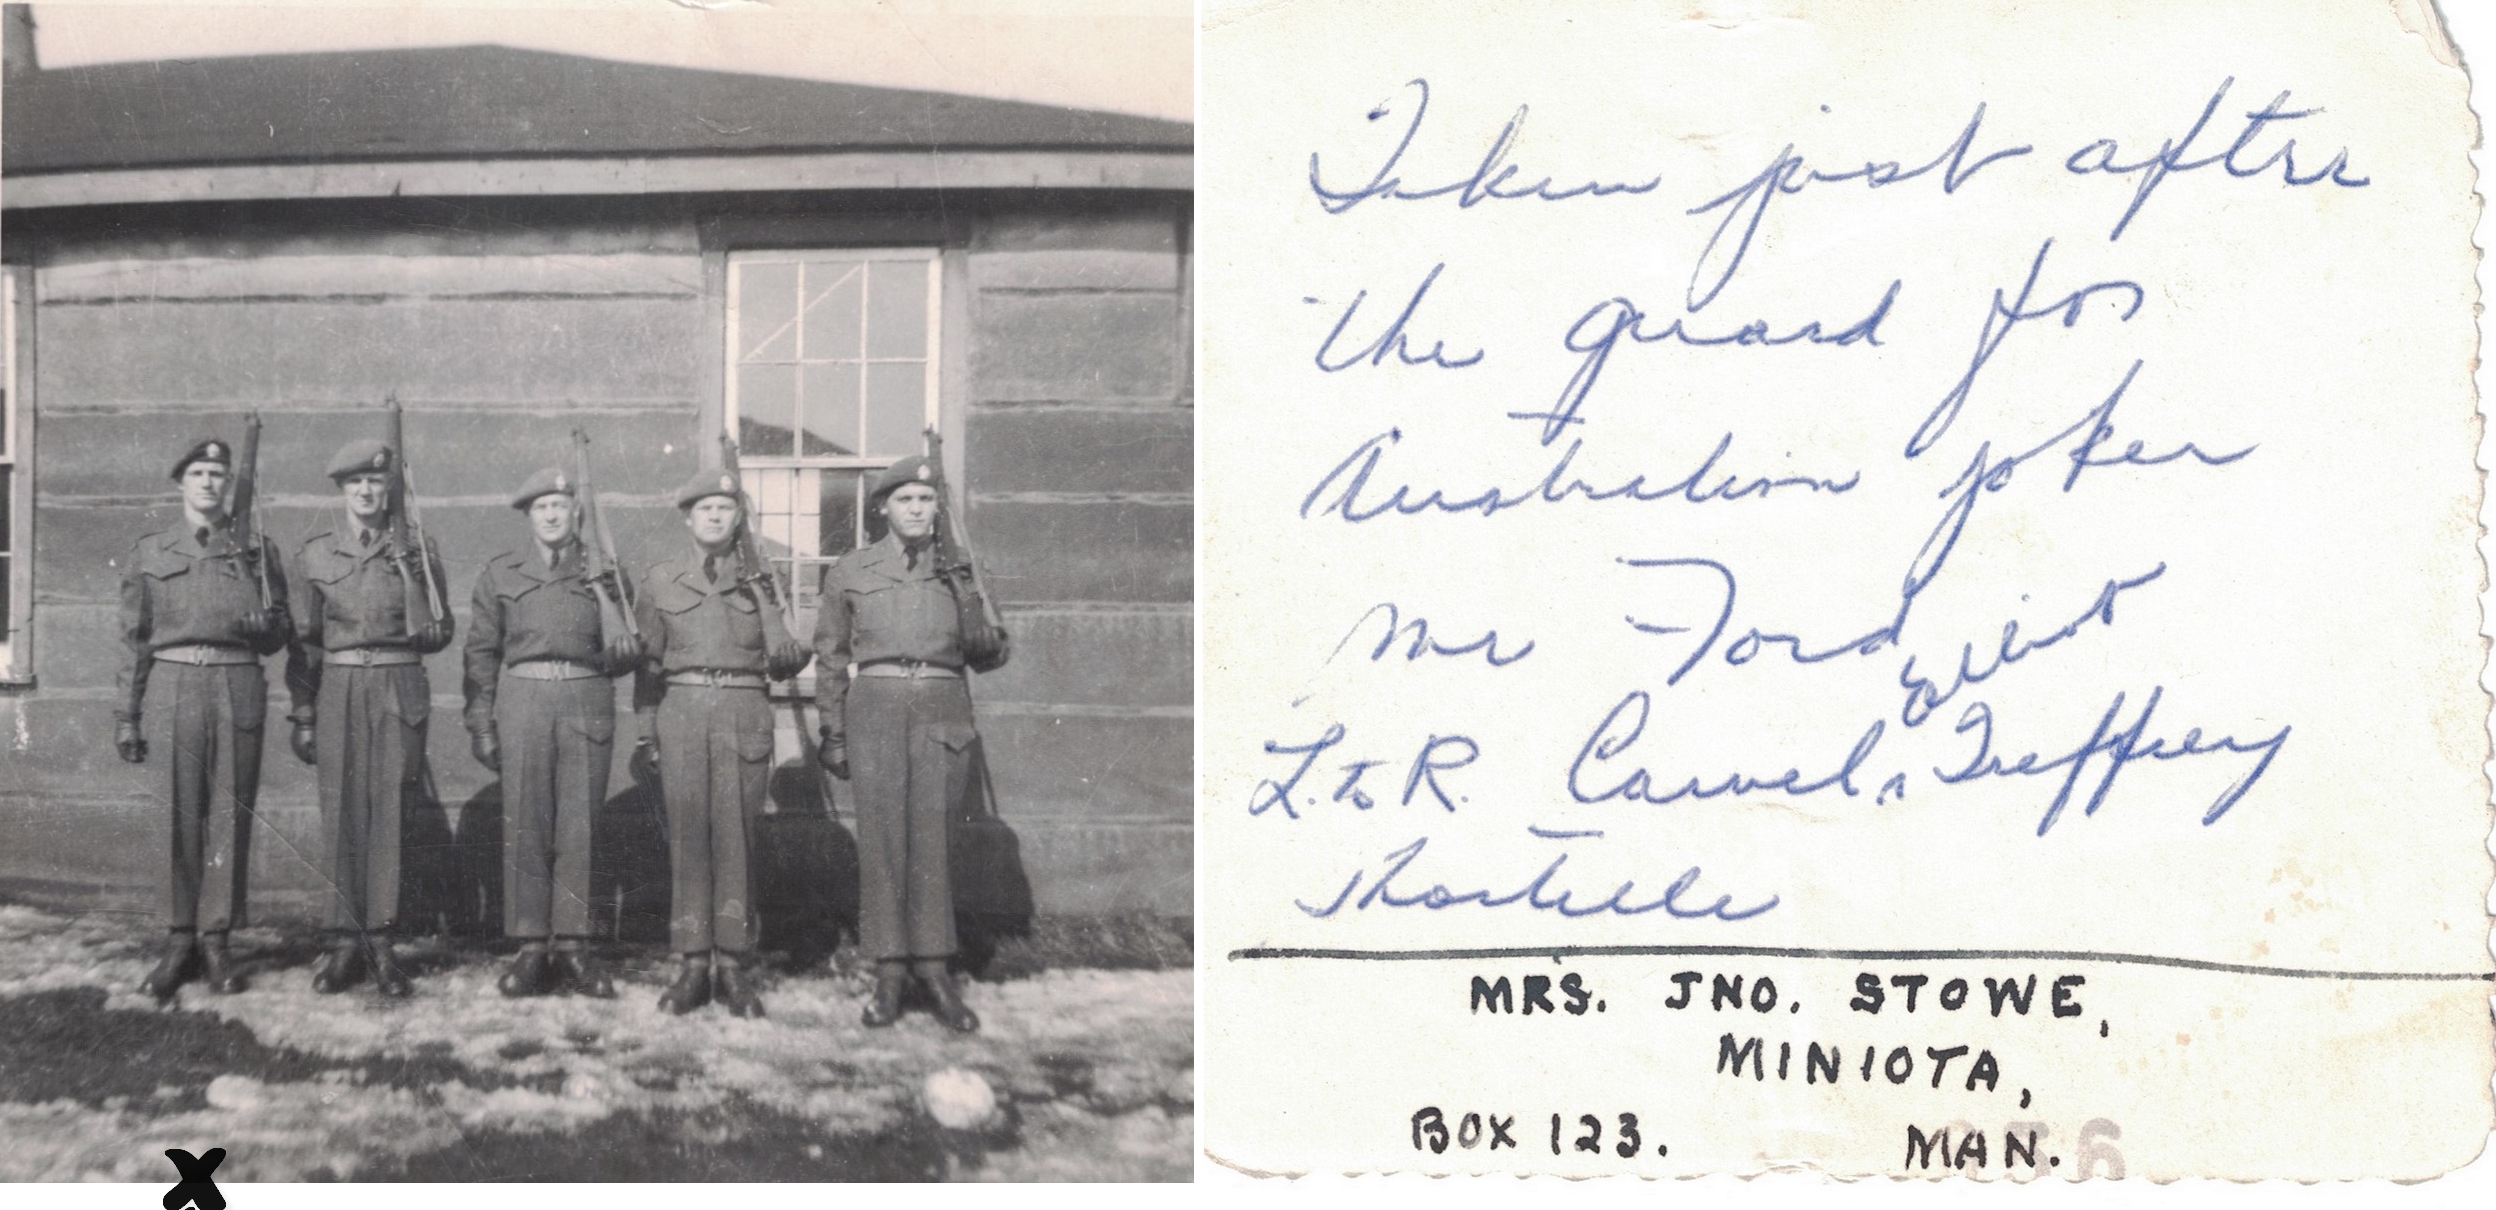 Taken just after
the guard for
Australian joker
Mr Ford
L. to R. Carvel, Treffrey
MRS. JNO. STOWE,
MINIOTA,
BOX 123. MAN.